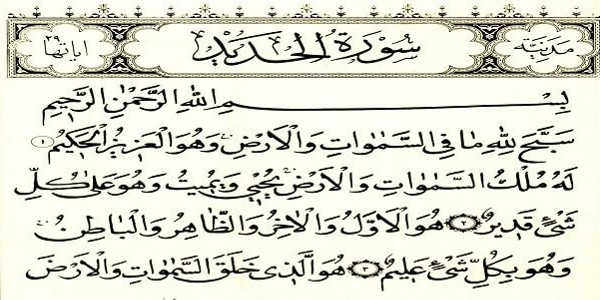 مدنية سورة الحديد اياتها ٢٩
بِسْمِ اللهِ الرَّحْمٰنِ الرَّحِيْمِ
سَبَّحَ لِلّٰهِ مَا فِى السَّمٰوَاتِ وَالْاَرْضِ وَهُوَ الْعَزِيْزُ الْحَكِيْمُ ١
لَهُ مُلْكُ السَّمٰوَاتِ وَالْاَرْضِ يُحْيٖى وَيُمِيْتُ وَهُوَ عَلٰى كُلِّ
شَىْءٍ قَدِيْرٌ ٢ هُوَ الْاَوَّلُ وَالْاٰخِرُ وَالظَّاهِرُ وَالْبَاطِنُ
وَهُوَ بِكُلِّ شَىْءٍ عَلِيْمٌ ٣ هُوَ الَّذٖى خَلَقَ السَّمٰوَاتِ وَالْاَرْضَ